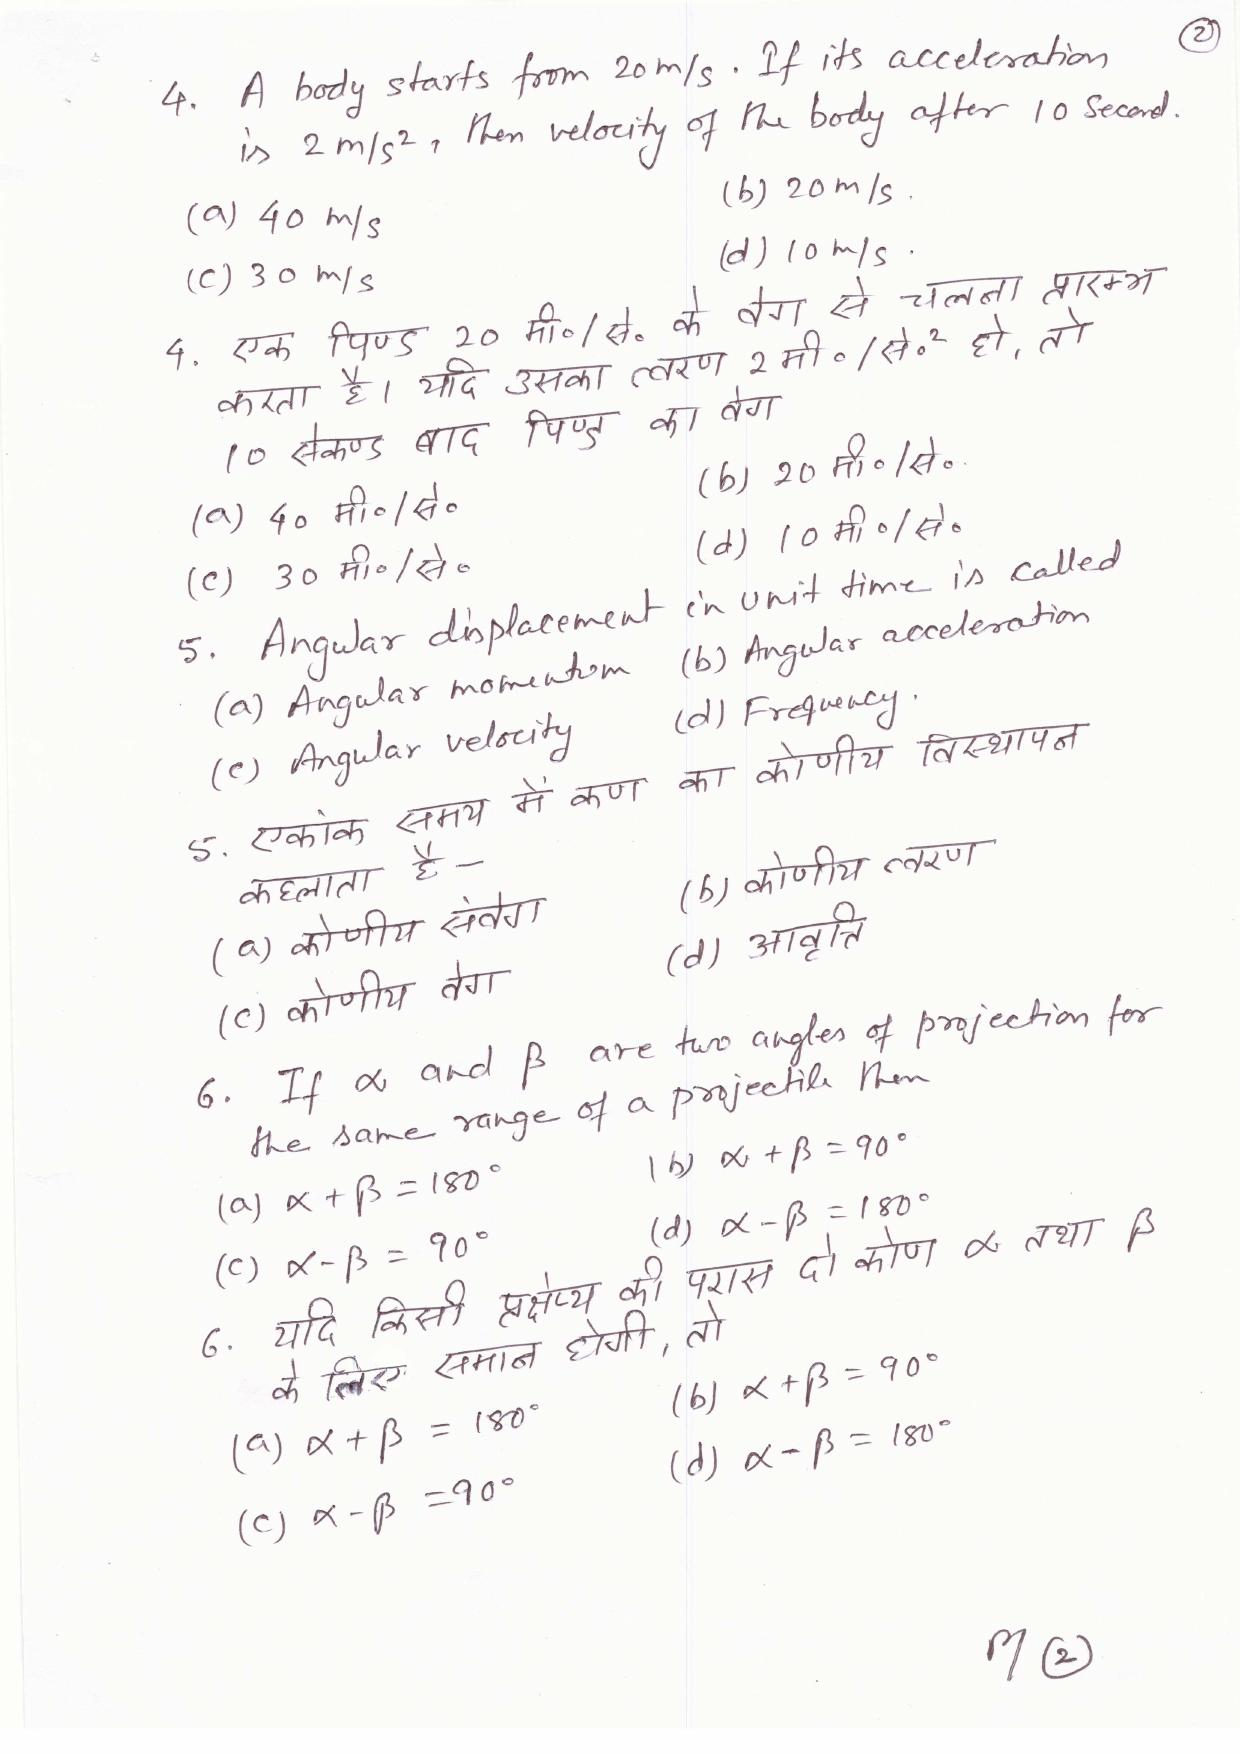 2
4. A body starts from 20 m/s. If its acceleration
is 2 m/s², then velocity of the body after 10 Second.
(a) 40 m/s (b) 20 m/s.
(c) 30 m/s (d) 10 m/s.
4. एक पिण्ड 20 मी०/से० के वेग से चलना प्रारम्भ
करता है। यदि उसका त्वरण 2 मी०/से०² हो, तो
10 सेकण्ड बाद पिण्ड का वेग
(a) 40 मी०/से० (b) 20 मी०/से०
(c) 30 मी०/से० (d) 10 मी०/से०
5. Angular displacement in unit time is called
(a) Angular momentum (b) Angular acceleration
(c) Angular velocity (d) Frequency.
5. एकांक समय में कण का कोणीय विस्थापन
कहलाता है –
(a) कोणीय संवेग (b) कोणीय त्वरण
(c) कोणीय वेग (d) आवृत्ति
6. If α and β are two angles of projection for
the same range of a projectile then
(a) α + β = 180° (b) α + β = 90°
(c) α - β = 90° (d) α - β = 180°
6. यदि किसी प्रक्षेप्य की परास दो कोण α तथा β
के लिए समान होगी, तो
(a) α + β = 180° (b) α + β = 90°
(c) α - β = 90° (d) α - β = 180°
2